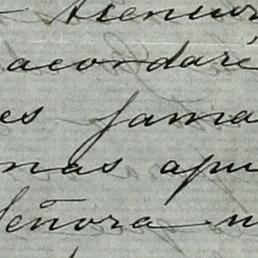 acordaré
es jama
nas apu
Señora